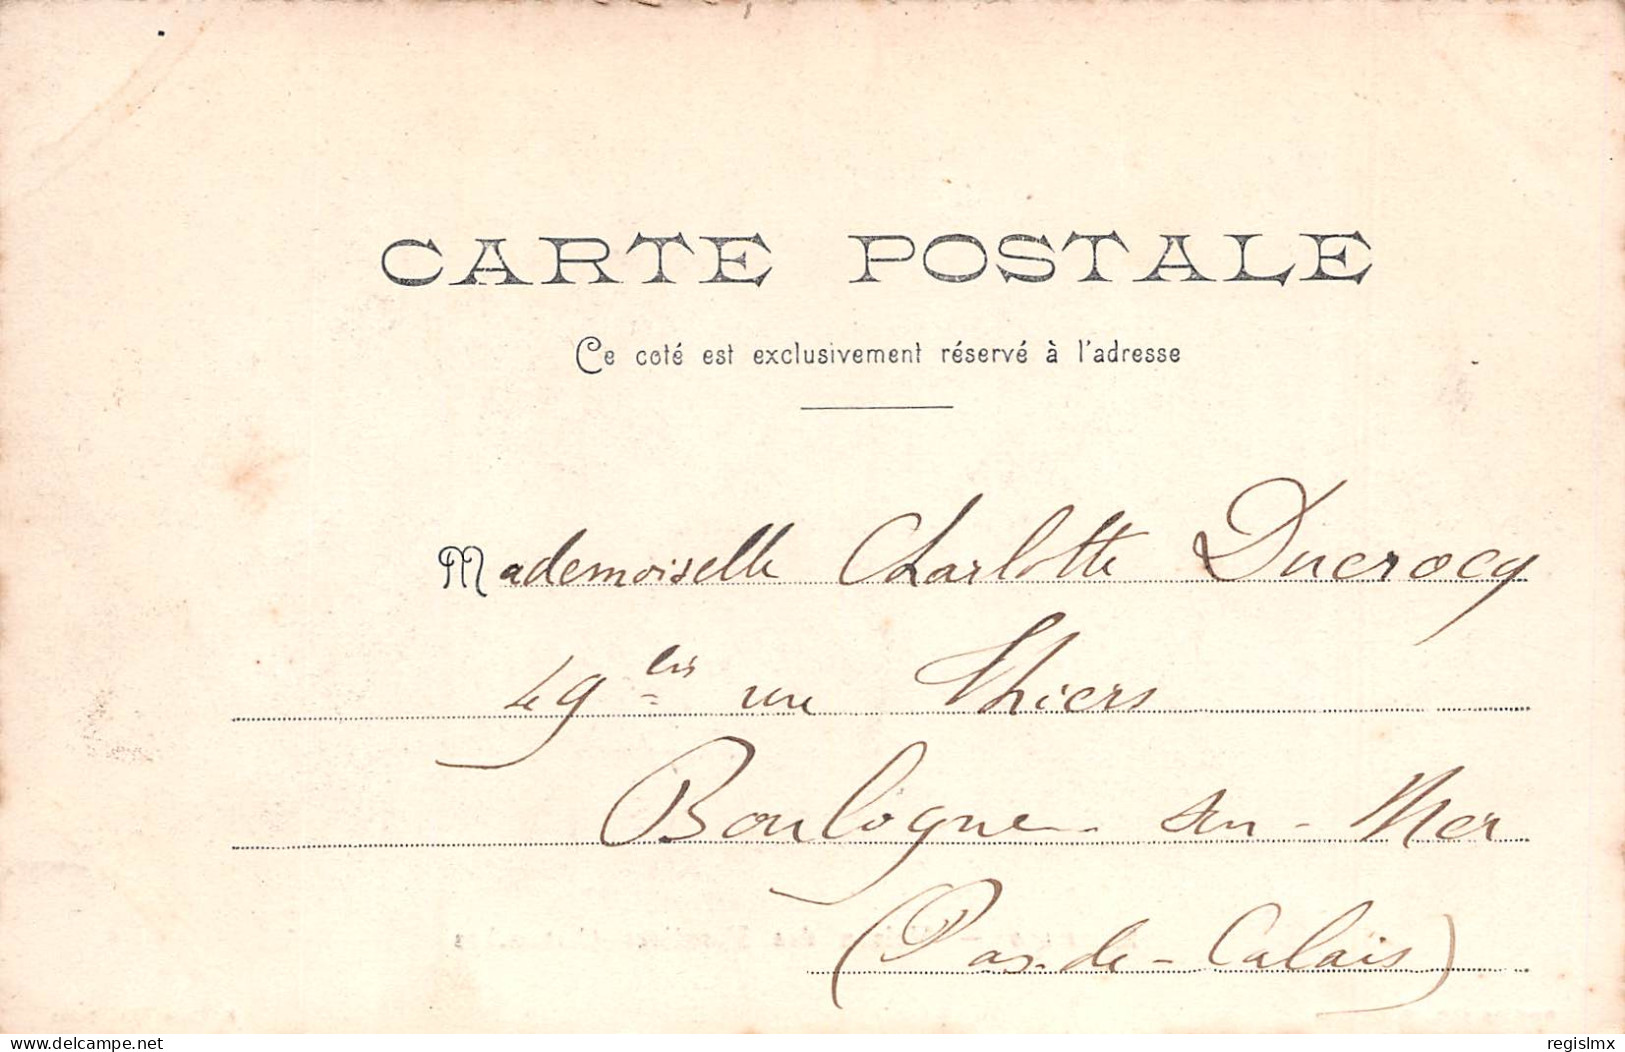 CARTE POSTALE
Ce coté est exclusivement réservé à l'adresse
Mademoiselle Charlotte Ducrocq
49 bis rue Thiers
Boulogne sur-Mer
(Pas-de-Calais)
delcampe.net
regislmx